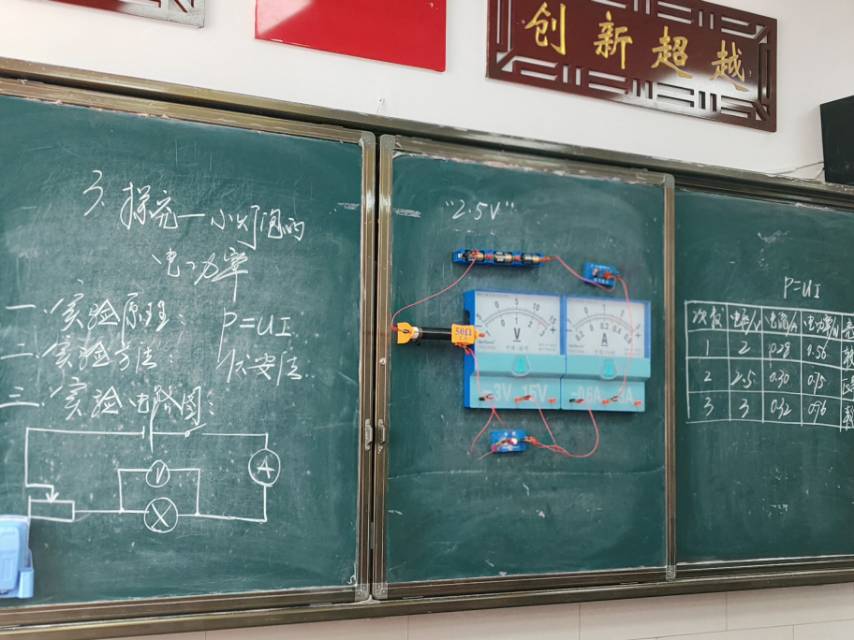 创新超越
3. 探究一小灯泡的
电功率
一. 实验原理: P=UI
二. 实验方法: 伏安法
三. 实验电路图:
V
A
"2.5V"
50Ω
0 5 10 15
0 1 2 3
V
A
-3V 15V
P=UI
次数 电压/V 电流/A 电功率/W
1 2 0.28 0.56
2 2.5 0.30 0.75
3 3 0.32 0.96